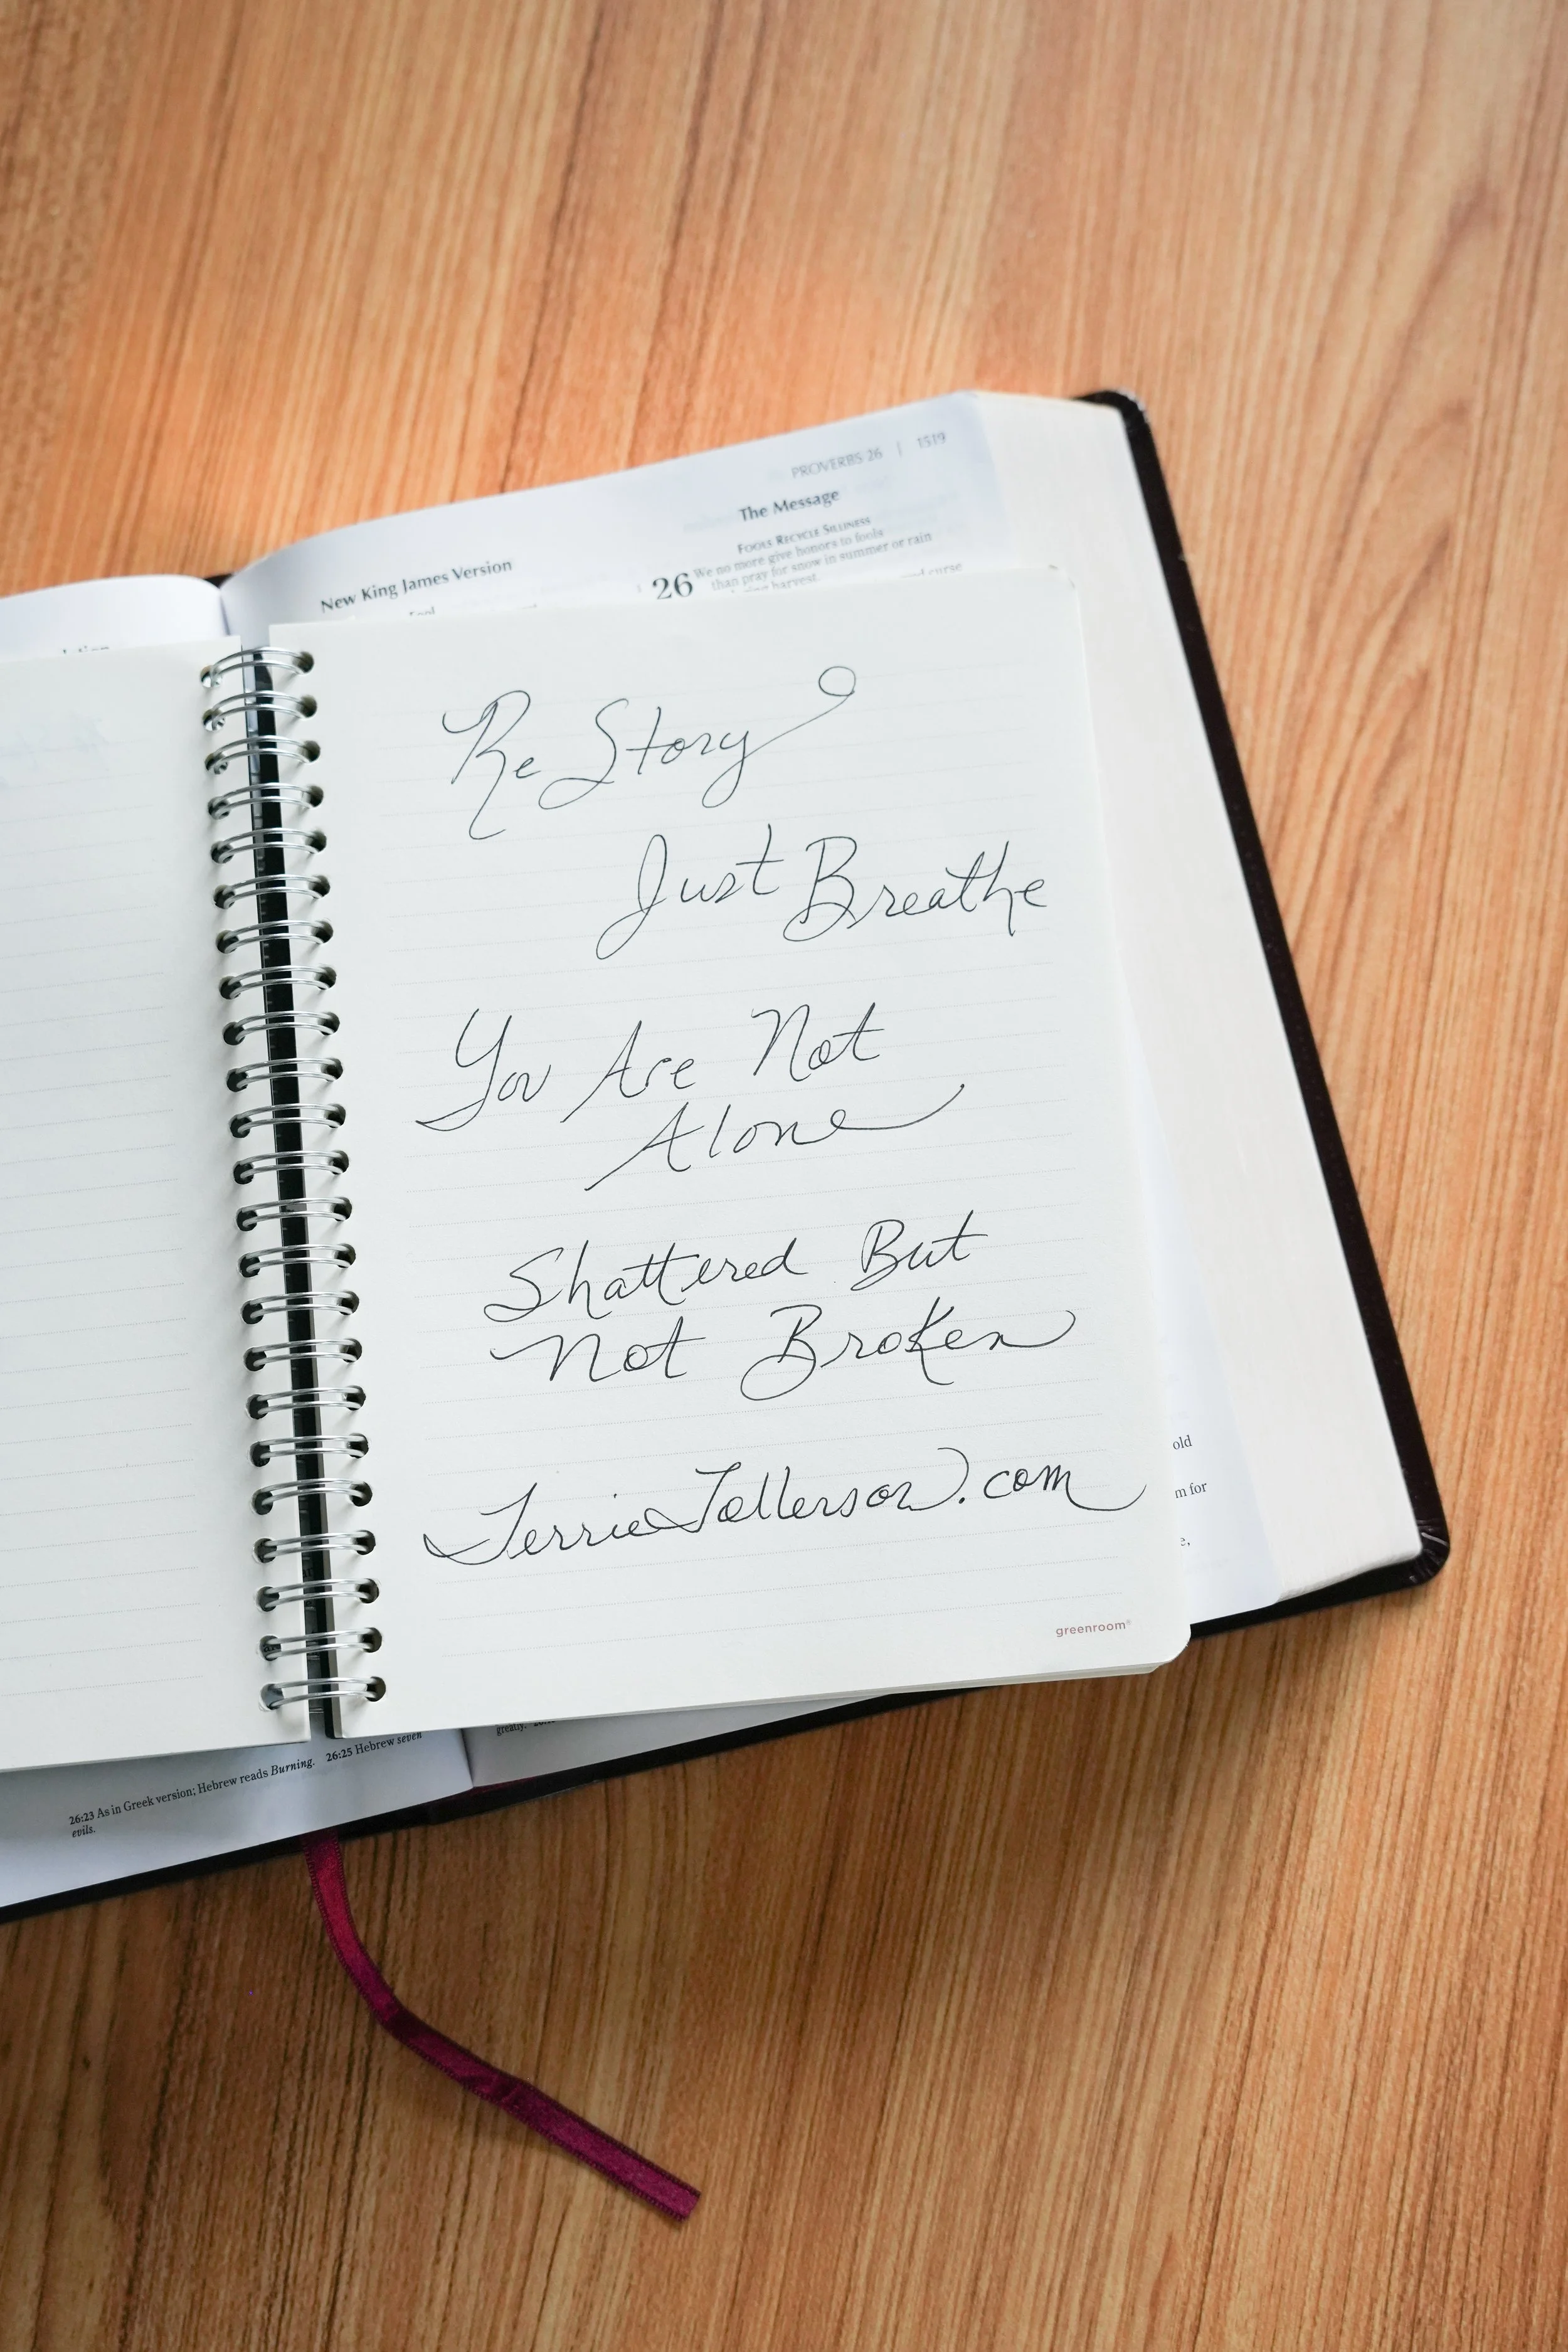 PROVERBS 26 | 1519
The Message
FOOLS RECYCLE SILLINESS
New King James Version
26 We no more give honors to fools
than pray for snow in summer or rain
harvest
and curse
Fool
Re Story
Just Breathe
You Are Not
Alone
Shattered But
Not Broken
TerrieTollerson.com
greenroom®
old
m for
e,
greatly.
26:23 As in Greek version; Hebrew reads Burning. 26:25 Hebrew seven
evils.